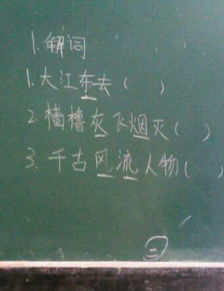 1.解词
1.大江东去(  )
2.樯橹灰飞烟灭(  )
3.千古风流人物(  )
三